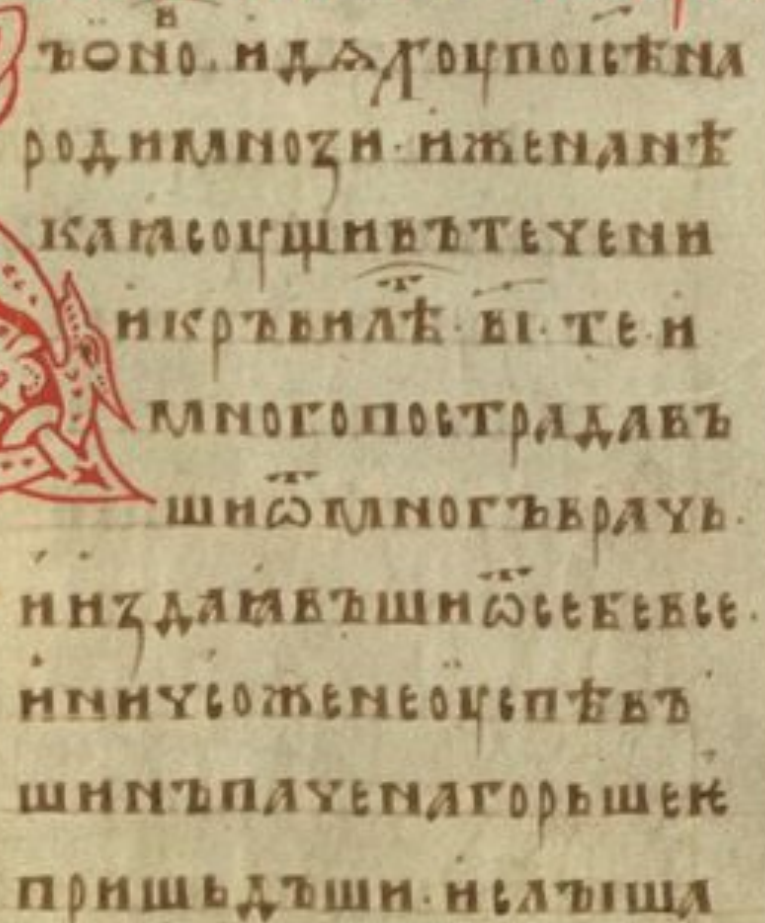 ъонⷡ҇о · идѧхоупоіс҃ѣна
родимнози · иженанѣ
каꙗсоущивътечени
икръвилѣⷮ · ві҃ · те · и
многопострадавъ
шиѿмногъврачь ·
ииздаꙗвъшиѿсебевсе ·
иничсоженеоуспѣвъ
шинъпаченагорьшеѥ
пришьдъши · ислъіша